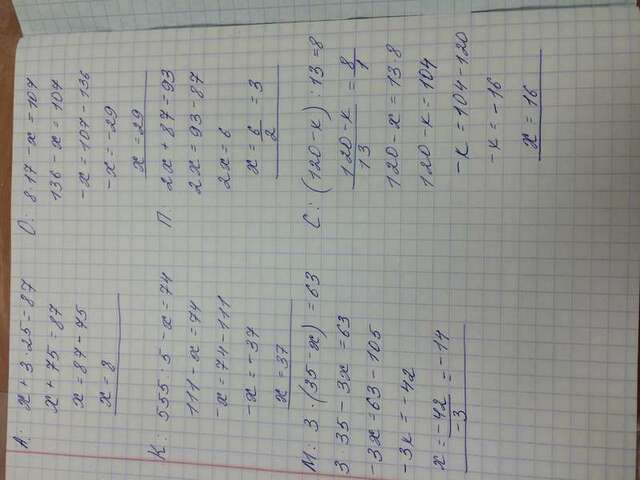 А: x + 3 · 25 = 87
x + 75 = 87
x = 87 - 75
x = 8
О: 8·17 - x = 107
136 - x = 107
-x = 107 - 136
-x = -29
x = 29
К: 555 : 5 - x = 74
111 - x = 74
-x = 74 - 111
-x = -37
x = 37
П: 2x + 87 = 93
2x = 93 - 87
2x = 6
x = 6/2 = 3
М: 3 · (35 - x) = 63
3 · 35 - 3x = 63
-3x = 63 - 105
-3x = -42
x = -42/-3 = -14
С: (120 - x) : 13 = 8
120 - x/13 = 8/1
120 - x = 13·8
120 - x = 104
-x = 104 - 120
-x = -16
x = 16